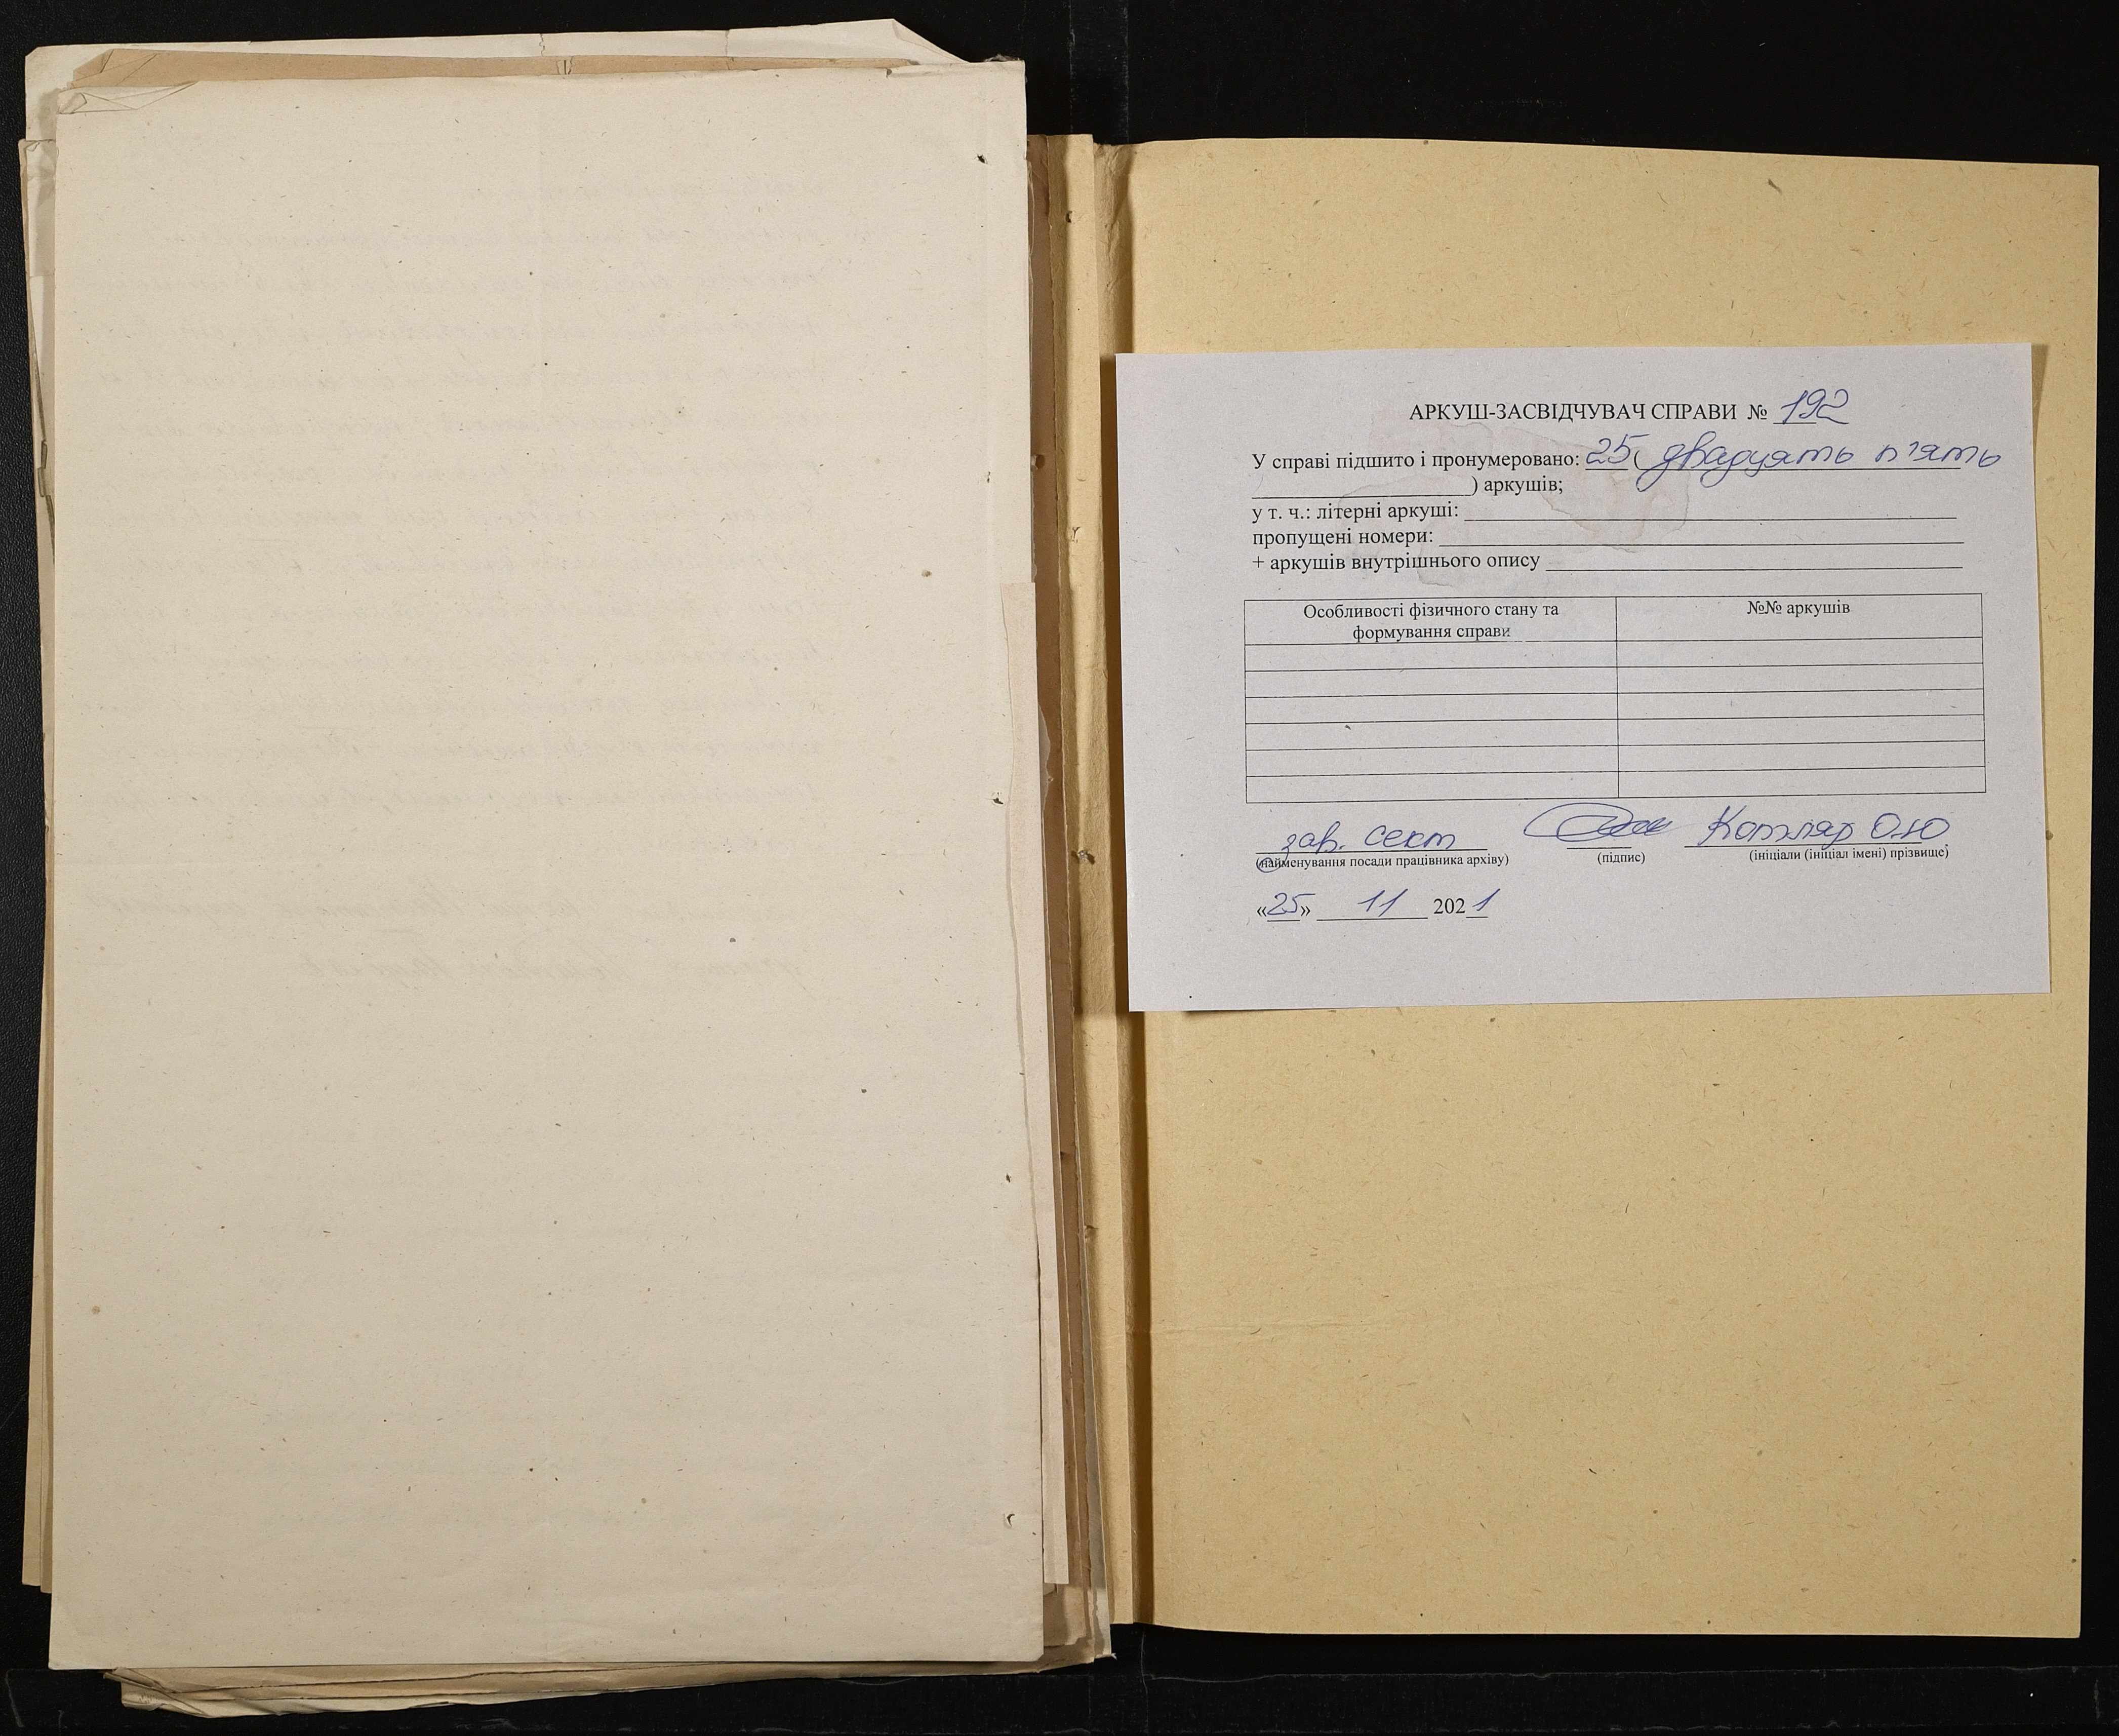 АРКУШ-ЗАСВІДЧУВАЧ СПРАВИ № 192
У справі підшито і пронумеровано: 25 ( двадцять п'ять
) аркушів;
у т. ч.: літерні аркуші:
пропущені номери:
+ аркушів внутрішнього опису
Особливості фізичного стану та формування справи
№№ аркушів
зав. сект Котляр О.Ю
(найменування посади працівника архіву) (підпис) (ініціали (ініціал імені) прізвище)
«25» 11 2021